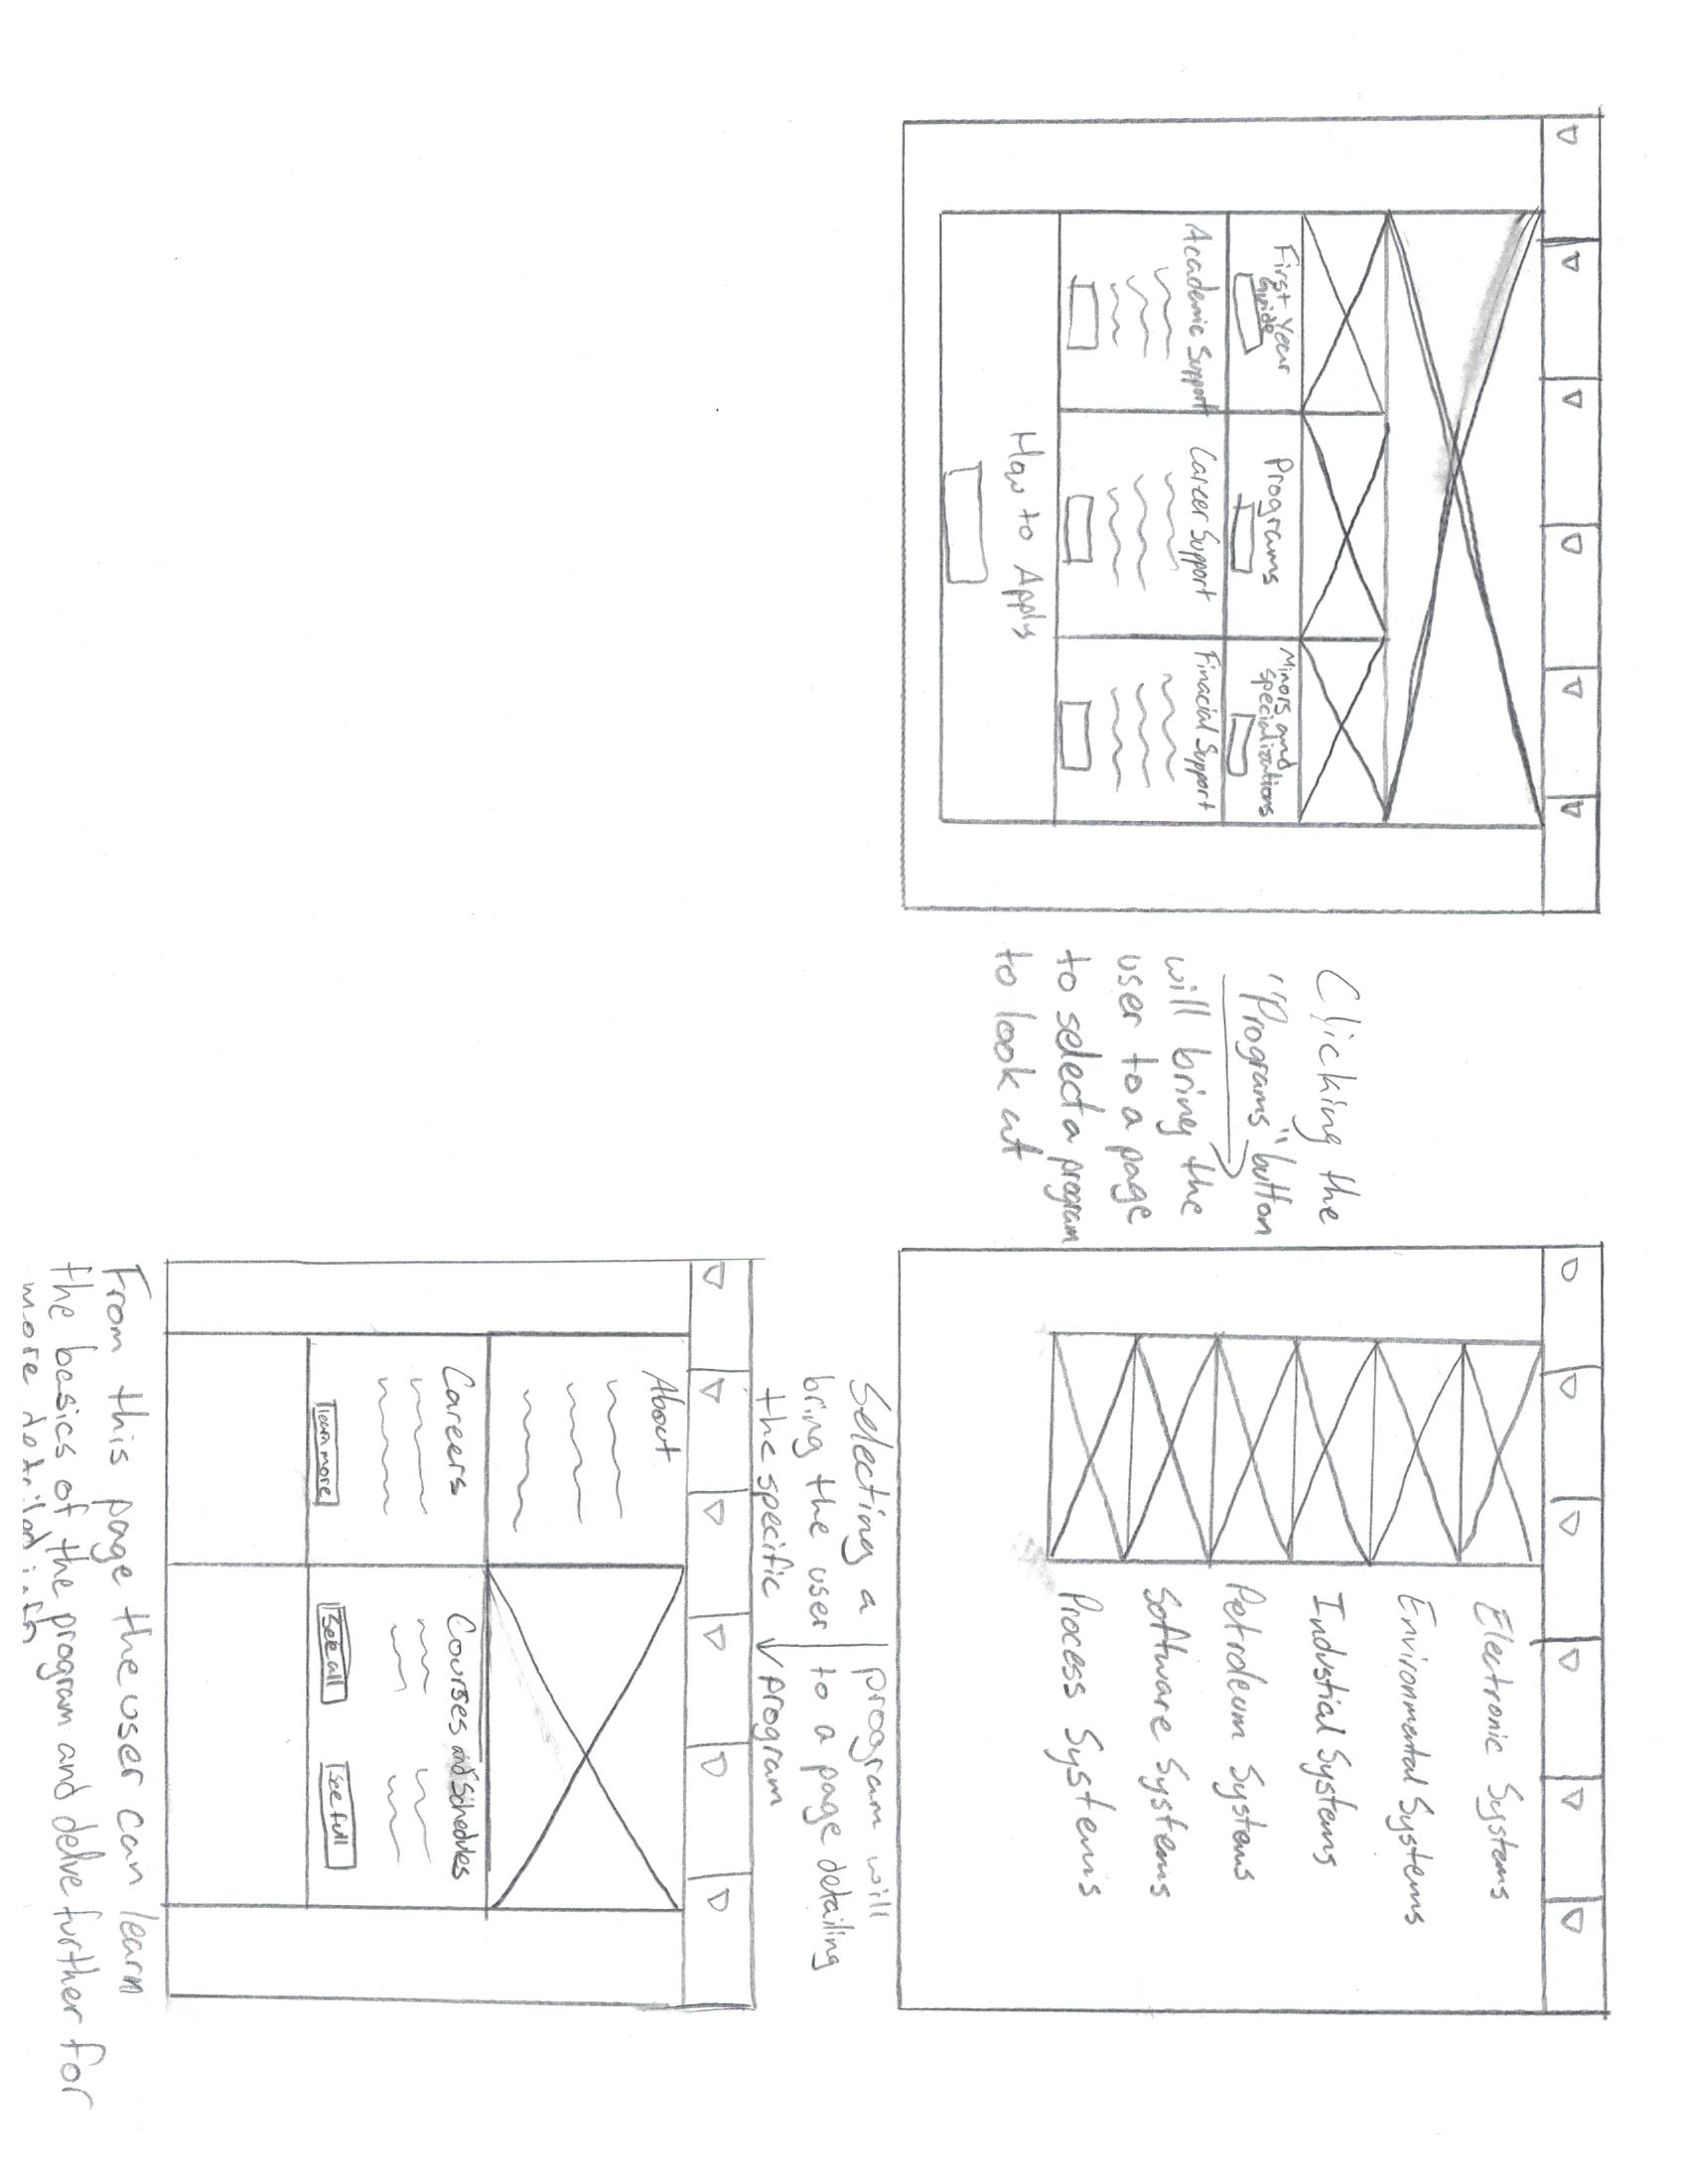 First Year
Guide
Programs
Minors and
specializations
Academic Support
Career Support
Finacial Support
How to Apply
Clicking the
"Programs" button
will bring the
user to a page
to select a program
to look at
Electronic Systems
Environmental Systems
Industial Systems
Petroleum Systems
Software Systems
Process Systems
Selecting a program will
bring the user to a page detailing
the specific program
About
Careers
learn more
Courses and Schedules
See all
See full
From this page the user can learn
the basics of the program and delve further for
more detailed info